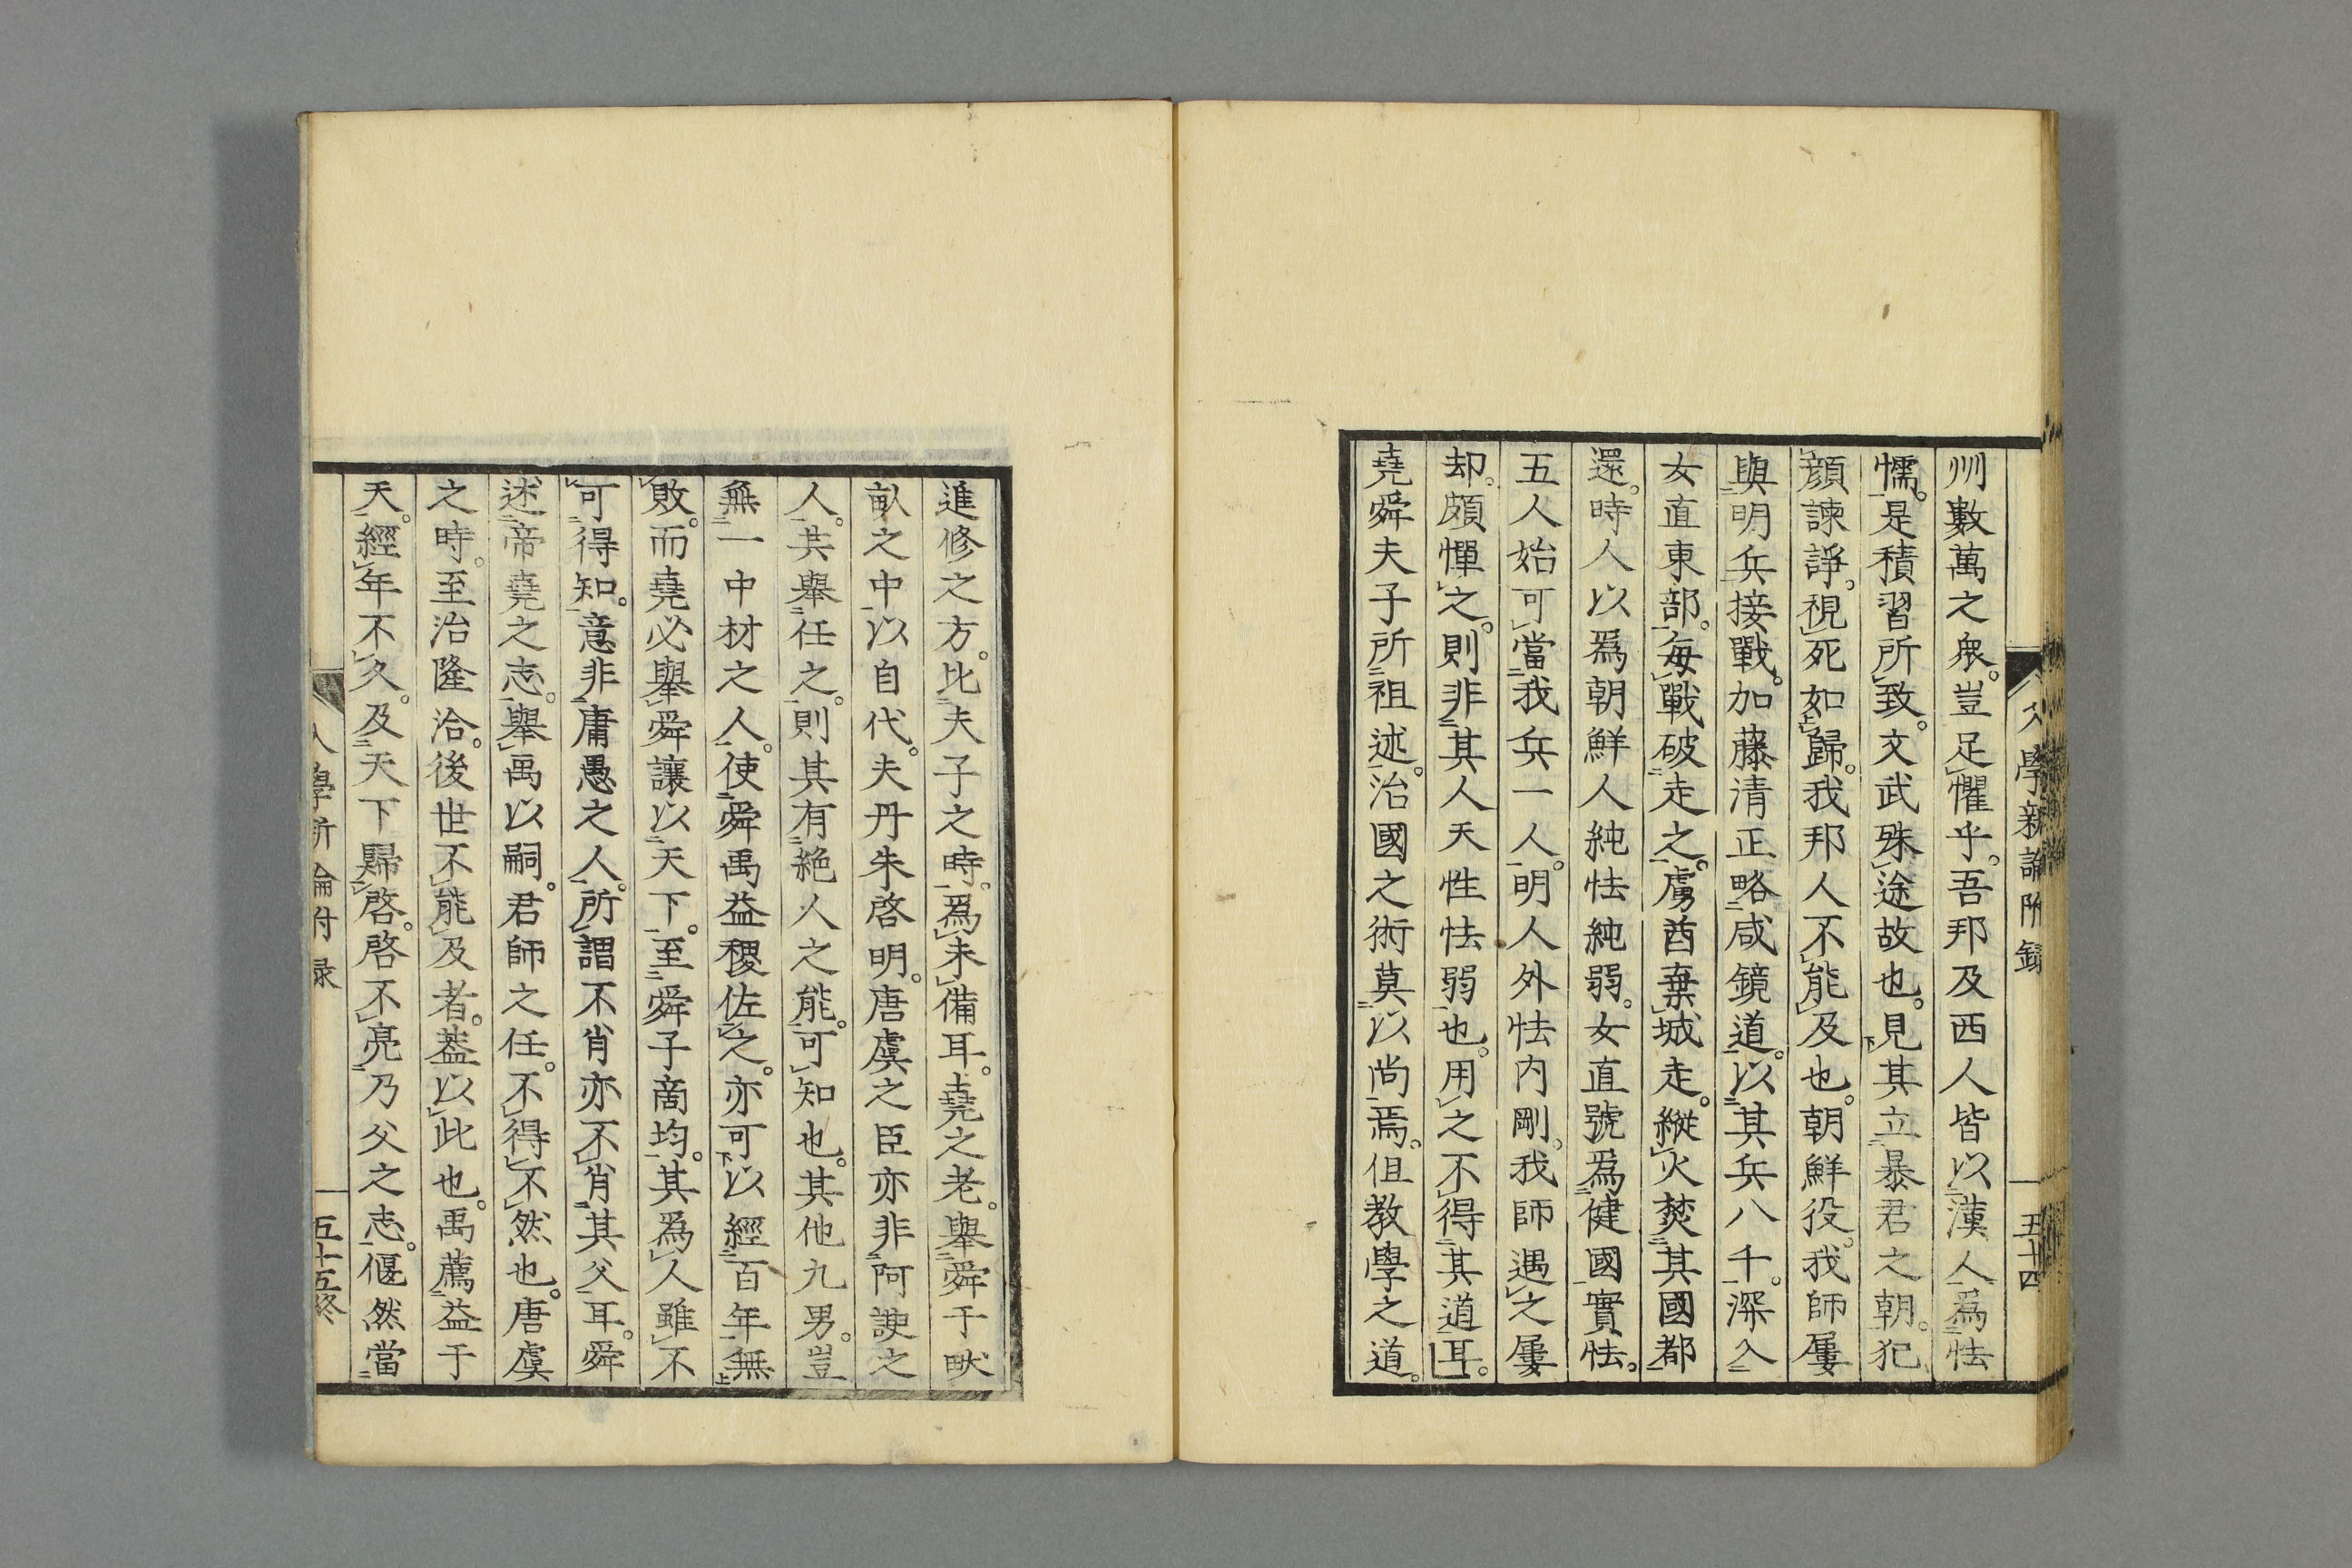 入學新論附録
五十四
州數萬之衆。豈足懼乎。吾邦及西人皆以漢人爲怯
懦。是積習所致。文武殊途故也。見其立暴君之朝。犯
顔諫諍。視死如歸。我邦人不能及也。朝鮮役。我師屢
與明兵接戰。加藤清正略咸鏡道。以其兵八千。深入
女直東部。毎戰破走之。虜酋棄城走。縱火焚其國都
還。時人以爲朝鮮人純怯純弱。女直號爲健國實怯。
五人始可當我兵一人。明人外怯内剛。我師遇之屢
却。頗憚之。則非其人天性怯弱也。用之不得其道耳。
堯舜夫子所祖述。治國之術莫以尚焉。但教學之道。
進修之方。比夫子之時。爲未備耳。堯之老。擧舜于畎
畝之中以自代。夫丹朱啓明。唐虞之臣亦非阿諛之
人。共擧任之。則其有絶人之能。可知也。其他九男。豈
無一中材之人。使舜禹益稷佐之。亦可以經百年無
敗。而堯必擧舜讓以天下。至舜子商均。其爲人雖不
可得知。意非庸愚之人。所謂不肖亦不肖其父耳。舜
述帝堯之志。擧禹以嗣。君師之任。不得不然也。唐虞
之時。至治隆洽。後世不能及者。葢以此也。禹薦益于
天。經年不久。及天下歸啓。啓不亮乃父之志。偃然當
入學新論附録
五十五終